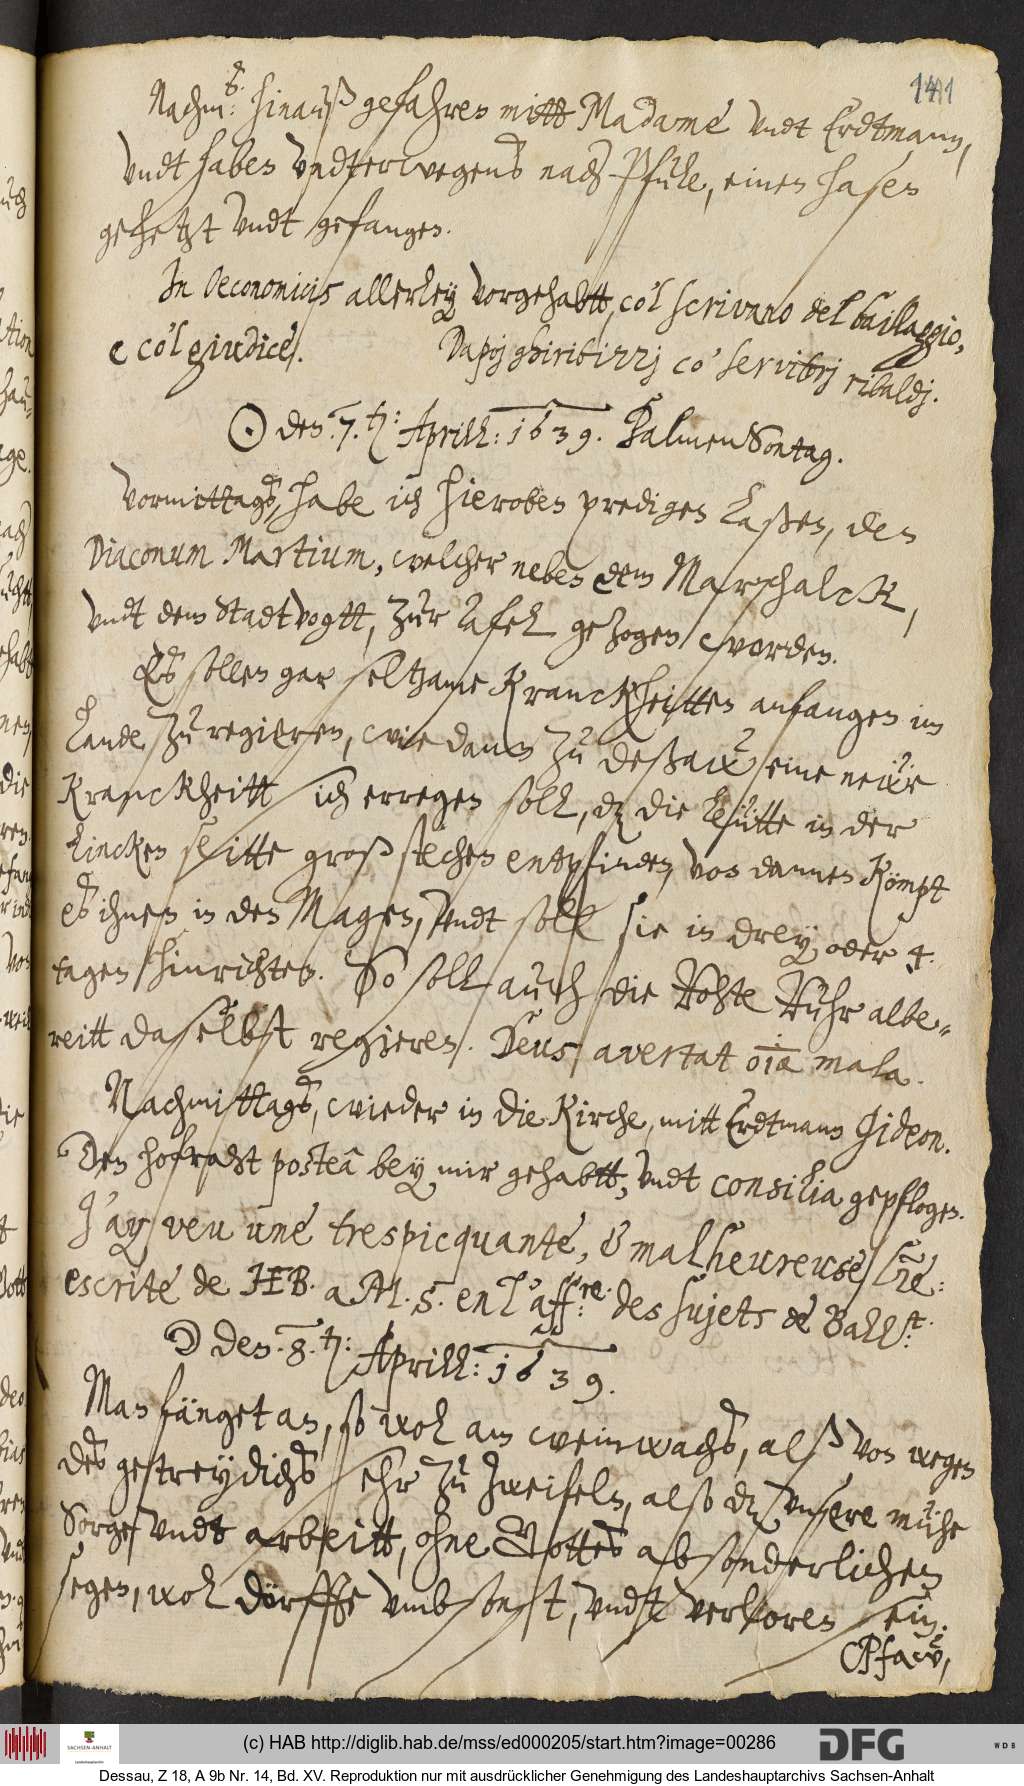 141
Nachm: hinauß gefahren mitt Madame vndt Erdtmann,
vndt haben vndterwegens nach Pfule, einen hasen
gehetzt vndt gefangen.
In Oeconomicis allerley vorgehabtt, co'l scrivano del baillaggio,
e co'l giudice. Dapoj ghiribizzj co' servitorj ribaldj.
☉ den: 7. Aprill: 1639. PalmenSontag.
Vormittags, habe ich hieroben predigen laßen, den
Diaconum Martium, welcher neben dem Marschalck,
vndt dem Stadtvogtt, zur Tafel gezogen worden.
Es sollen gar seltzame Kranckheitten anfangen im
Lande zu regieren, wie dann zu Deßaw eine newe
Kranckheitt sich erregen soll, dz die leütte in der
lincken seitte groß stechen entpfinden, von dannen kömpt
es ihnen in den Magen, vndt soll sie in drey oder 4.
tagen hinrichten. So soll auch die Rohte Ruhr albe-
reitt daselbst regieren. Deus avertat oĩa mala.
Nachmittags, wieder in die Kirche, mitt Erdtmann Gideon.
Den hofraht posteà bey mir gehabtt, vndt consilia gepflogen.
J'ay veu une trespicquante, & malheureuse lre:
escrite de HEB. a M. S. en l'aff:re des sujets de Ball:st.
☽ den: 8. Aprill: 1639.
Man fänget an, so wol am weinwachs, alß von wegen
des getreydichs sehr zu zweifeln, also dz vnsere mühe
Sorge vndt arbeitt, ohne Gottes absonderlichen
segen, wol dörffte vmbsonst, vndt verloren sein.
(c) HAB http://diglib.hab.de/mss/ed000205/start.htm?image=00286
DFG
WDB
SACHSEN-ANHALT
Dessau, Z 18, A 9b Nr. 14, Bd. XV. Reproduktion nur mit ausdrücklicher Genehmigung des Landeshauptarchivs Sachsen-Anhalt